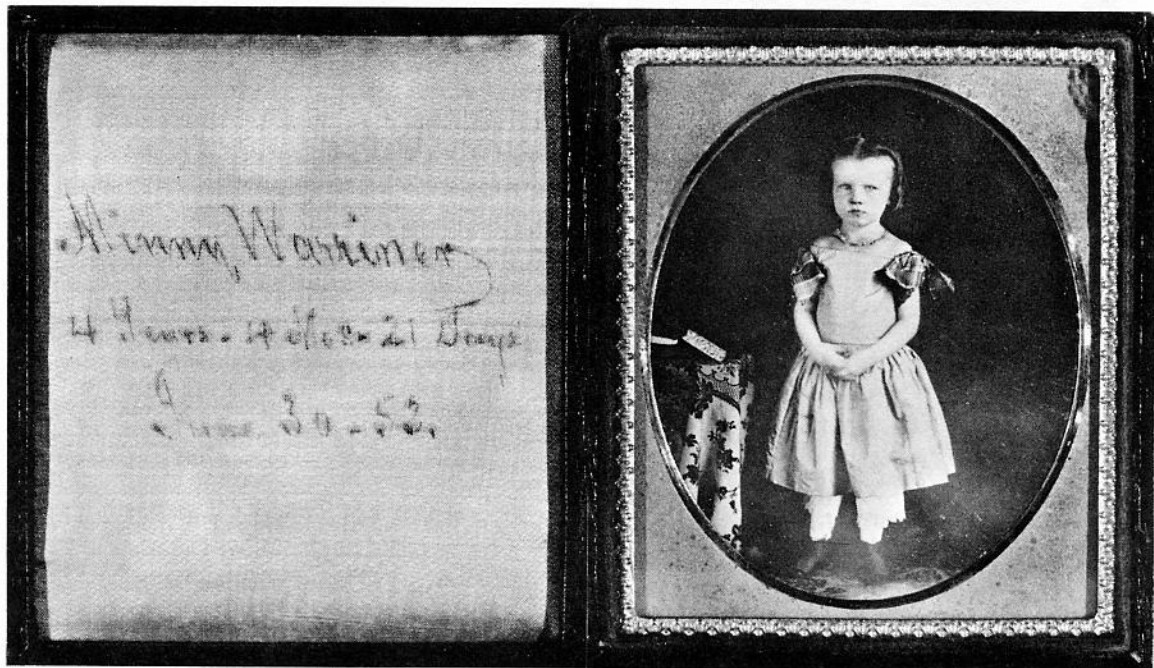 Minny Warriner
4 Years - 4 Mos - 21 Days
June 30 - 52.